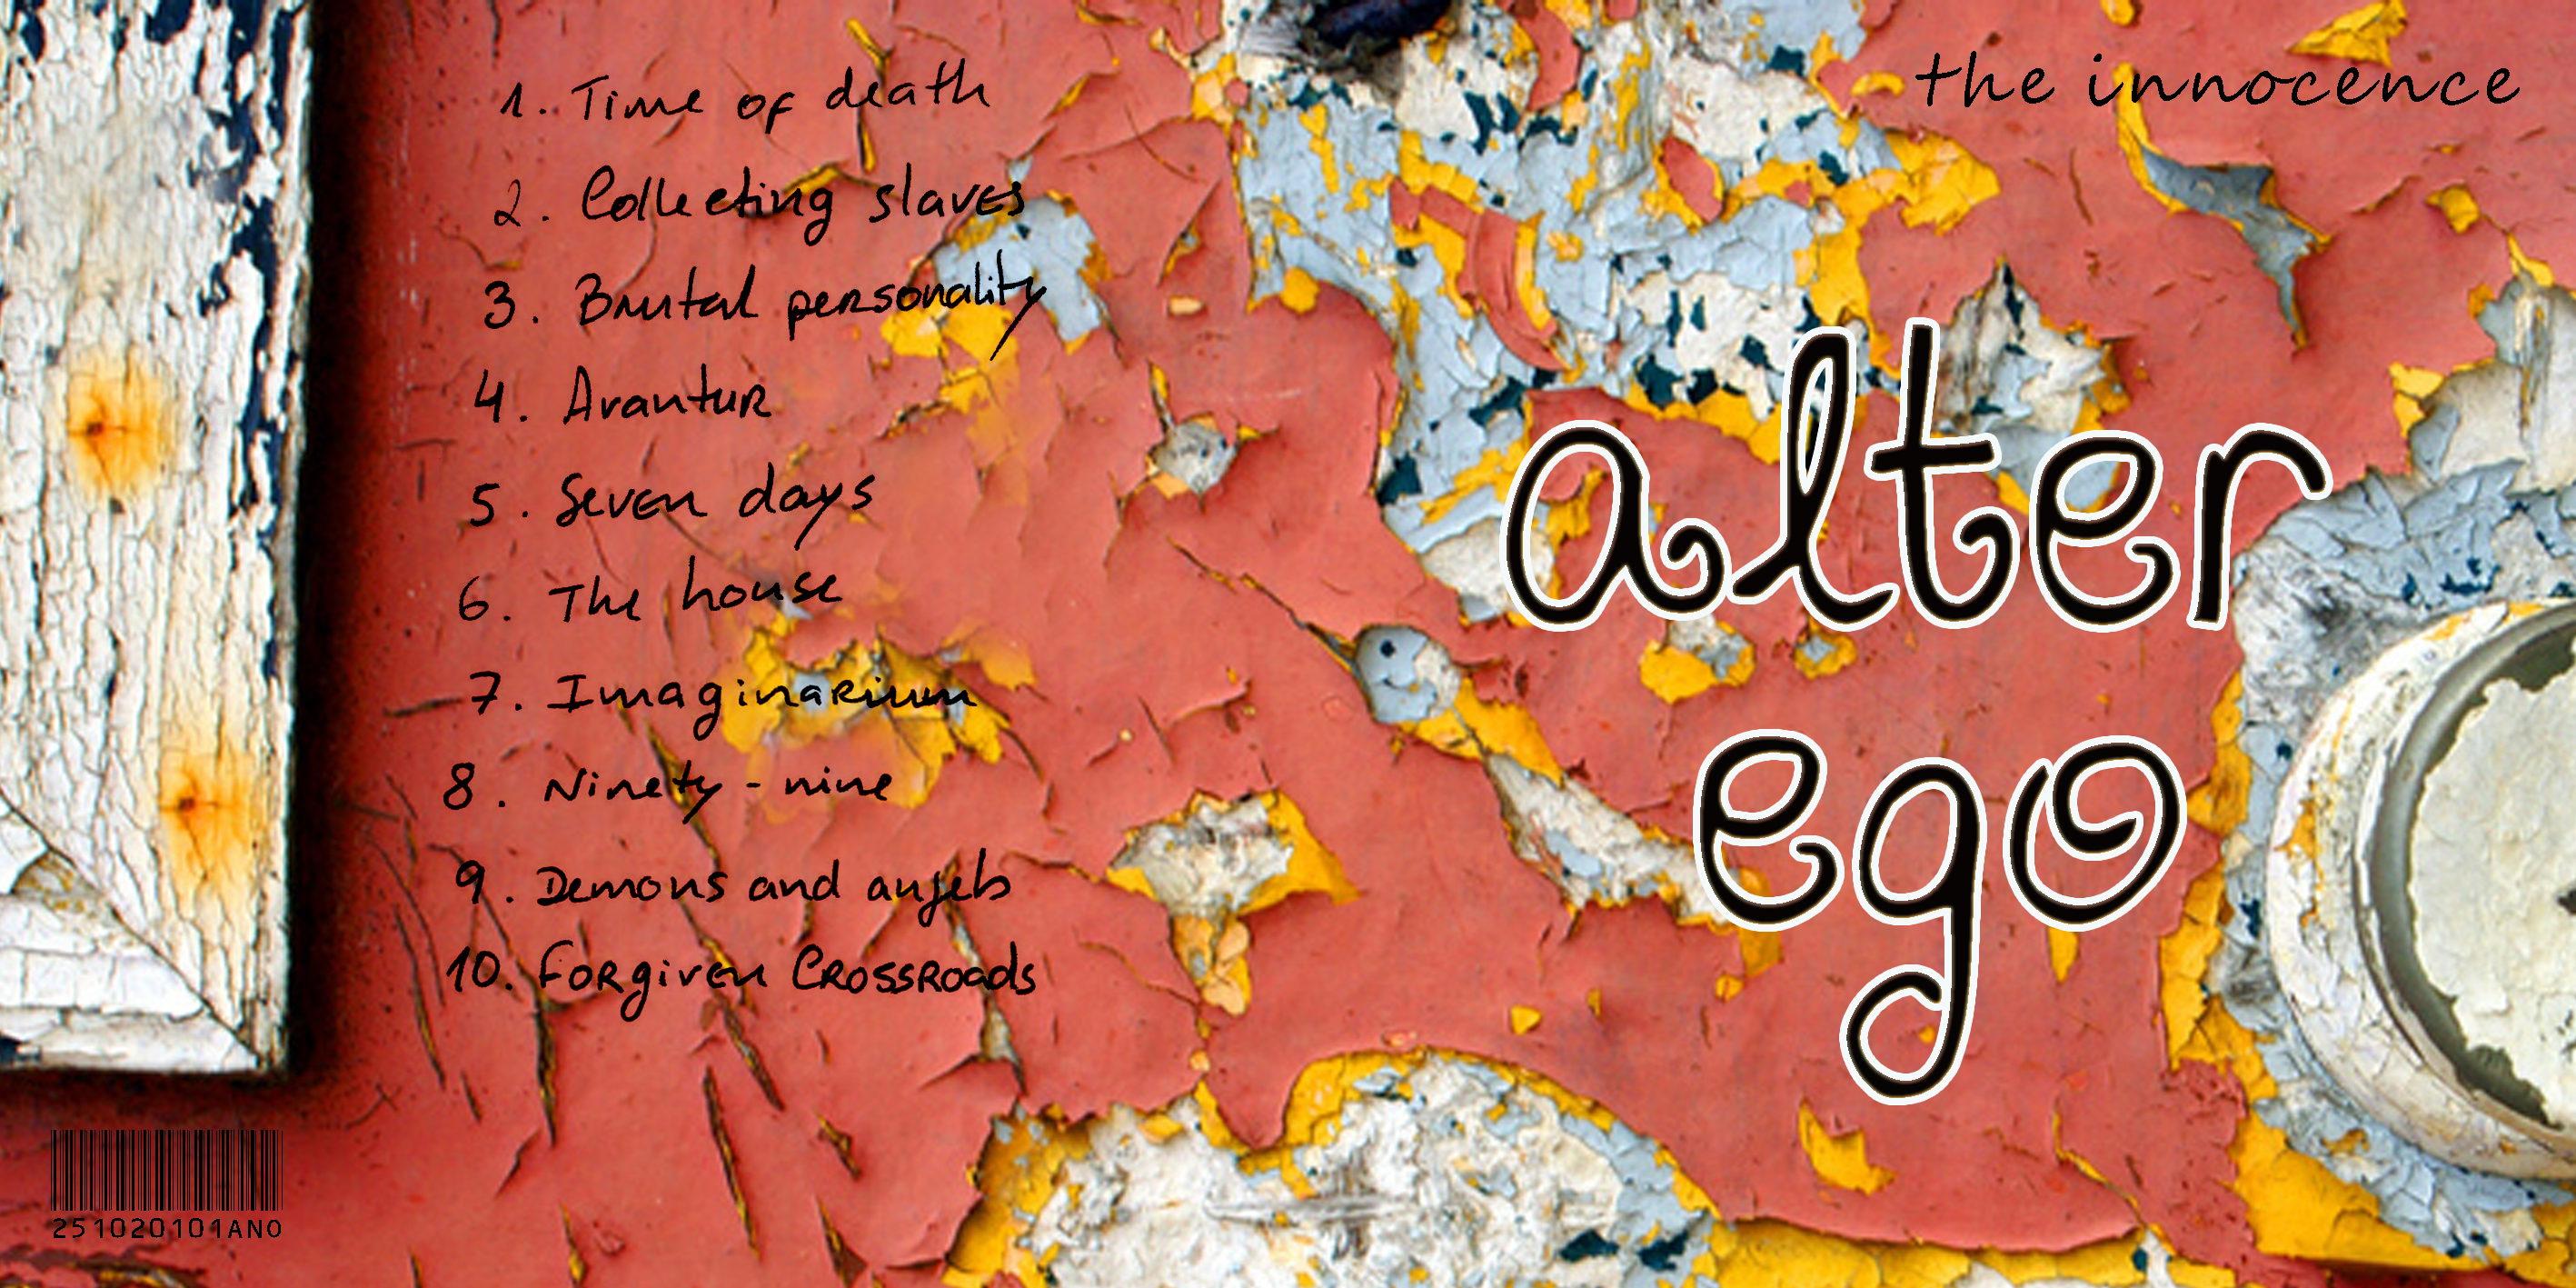 1. Time of death
2. Collecting slaves
3. Brutal personality
4. Avantur
5. Seven days
6. The house
7. Imaginarium
8. Ninety-nine
9. Demons and angels
10. Forgiven Crossroads
251020101ANO
the innocence
alter
ego